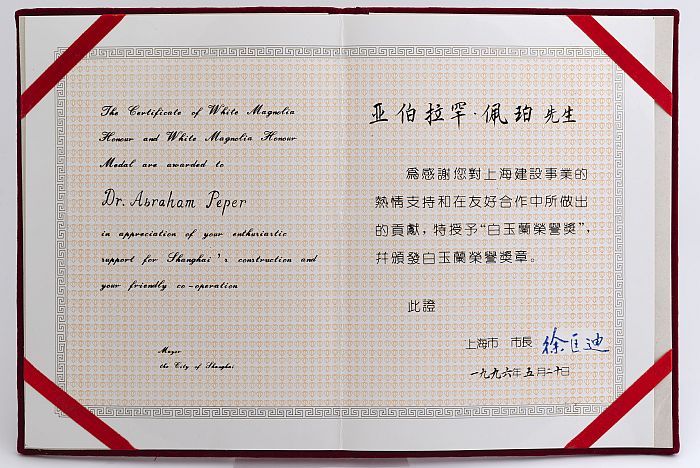 The Certificate of White Magnolia
Honour and White Magnolia Honour
Medal are awarded to
Dr. Abraham Peper
in appreciation of your enthusiastic
support for Shanghai's construction and
your friendly co-operation
Mayor
the City of Shanghai
亚伯拉罕·佩珀 先生
為感謝您對上海建設事業的
熱情支持和在友好合作中所做出
的貢獻，特授予“白玉蘭榮譽獎”，
幷頒發白玉蘭榮譽獎章。
此證
上海市 市長 徐匡迪
一九九六年五月二十日